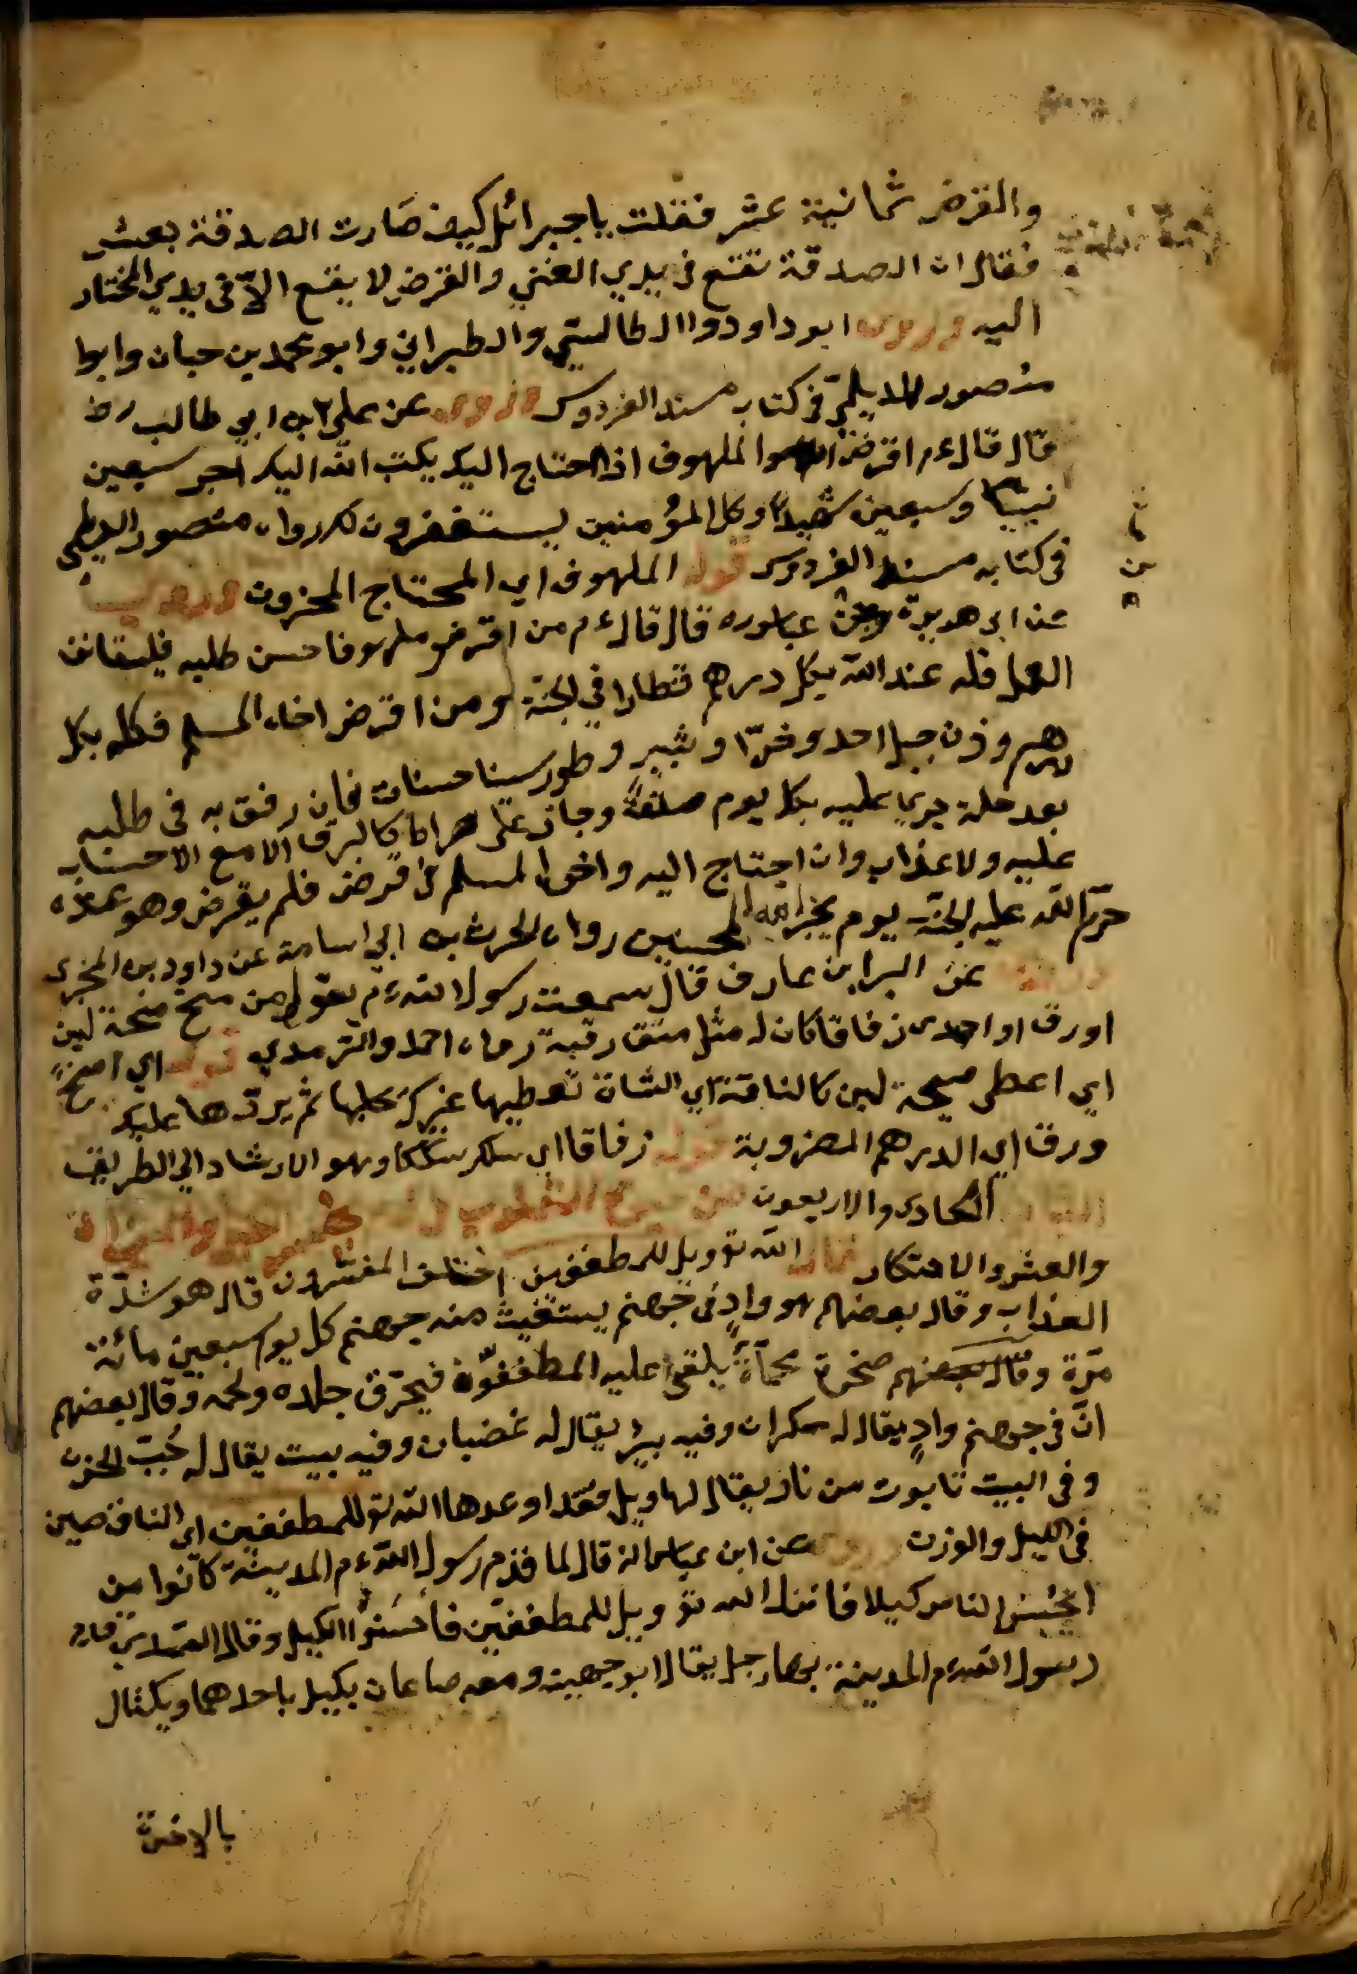 والقرض ثمانية عشر فقلت يا جبرائل كيف صَارت الصدقة بعشر
فقال ان الصدقة تقع في يدي الغني والقرض لا يقع الّا في يدي المحتاد
اليه وروى ابو داودوا الطالستي والطبراني وابو محمد بن حبان وابوا
منصور الديلميّ في كتاب مسند الفردوس وروى عن علي ابن ابي طالب رض
قال قال ءم اقرضوا الملهوف اذا احتاج اليك يكتب الله اليك اجر سبعين
نبيا وسبعين شهيداً وكل المؤمنين يستغفرون لك رواه منصور الديلمي
في كتابه مسند الفردوس قوله الملهوف اي المحتاج المحزون
عن ابي هريرة وعن عباس ره قال قال ءم من اقرض ملهوفا حسن طلبه فليستانف
العمل فله عند الله بكل درهم قنطارا في الجنّة ومن اقرض اخاه المسلم فكله بكل
درهم وزن جبل احد وحرّا وثبير وطور سينا حسنات فان رفق به في طلبه
بعد حله جري عليه بكل يوم صدقة وجاز على صراط كالبرق الامع لاحساب
عليه ولا عذاب وان احتاج اليه واخوا المسلم في قرض فلم يقرض وهو عنده
حرّم الله عليه الجنّة يوم يجز الله المحسنين رواه الحرث بن ابي اسامة عن داود بن المخبرى
عن البرا بن عارف قال سمعت رسول الله ءم يقول من منح منحة لبن
اورق او احدى زقاقا كان له مثل عتق رقبة رواه احمد والترمدي قوله اي منح
اي اعطى منيحة لبن كالناقة اي الشاة تعطيها غيرك يحلبها ثم يردّها عليك
ورق اي الدرهم المضروبة قوله زقاقا اي سكر سككا وهو الارشاد الي الطريق
الباب الحادى والاربعون
والعشر والاحتكار قال الله تو ويل للمطففين اختلف المفسّرون قال هو شدّة
العذاب وقال بعضهم هو وادٍ في جهنم يستغيث منه جهنم كل يوم سبعين مائة
مرّة وقال بعضهم صخرة محماةٌ يلقى عليه المطففّون فيحرّق جلده ولحمه وقال بعضهم
انّ في جهنم وادٍ يقال له سكران وفيه بيرٌ يقال له غضبان وفيه بيت يقال له جُبّ الحزن
وفي البيت تابوت من نار يقال لها ويل فقد اوعدها الله تو للمطففين اي الناقصين
في الكيل والوزن عن ابن عباس انه قال لما قدم رسول الله ءم المدينة كانوا من
اخبس الناس كيلا فانزل الله تو ويل للمطففين فأحسَنوُا الكيل وقال السدي قدم
رسول الله ءم المدينة بها رجل يقال ابو جهينه ومعه صاعان يكيل باحدهما ويكتال
بالاخرة